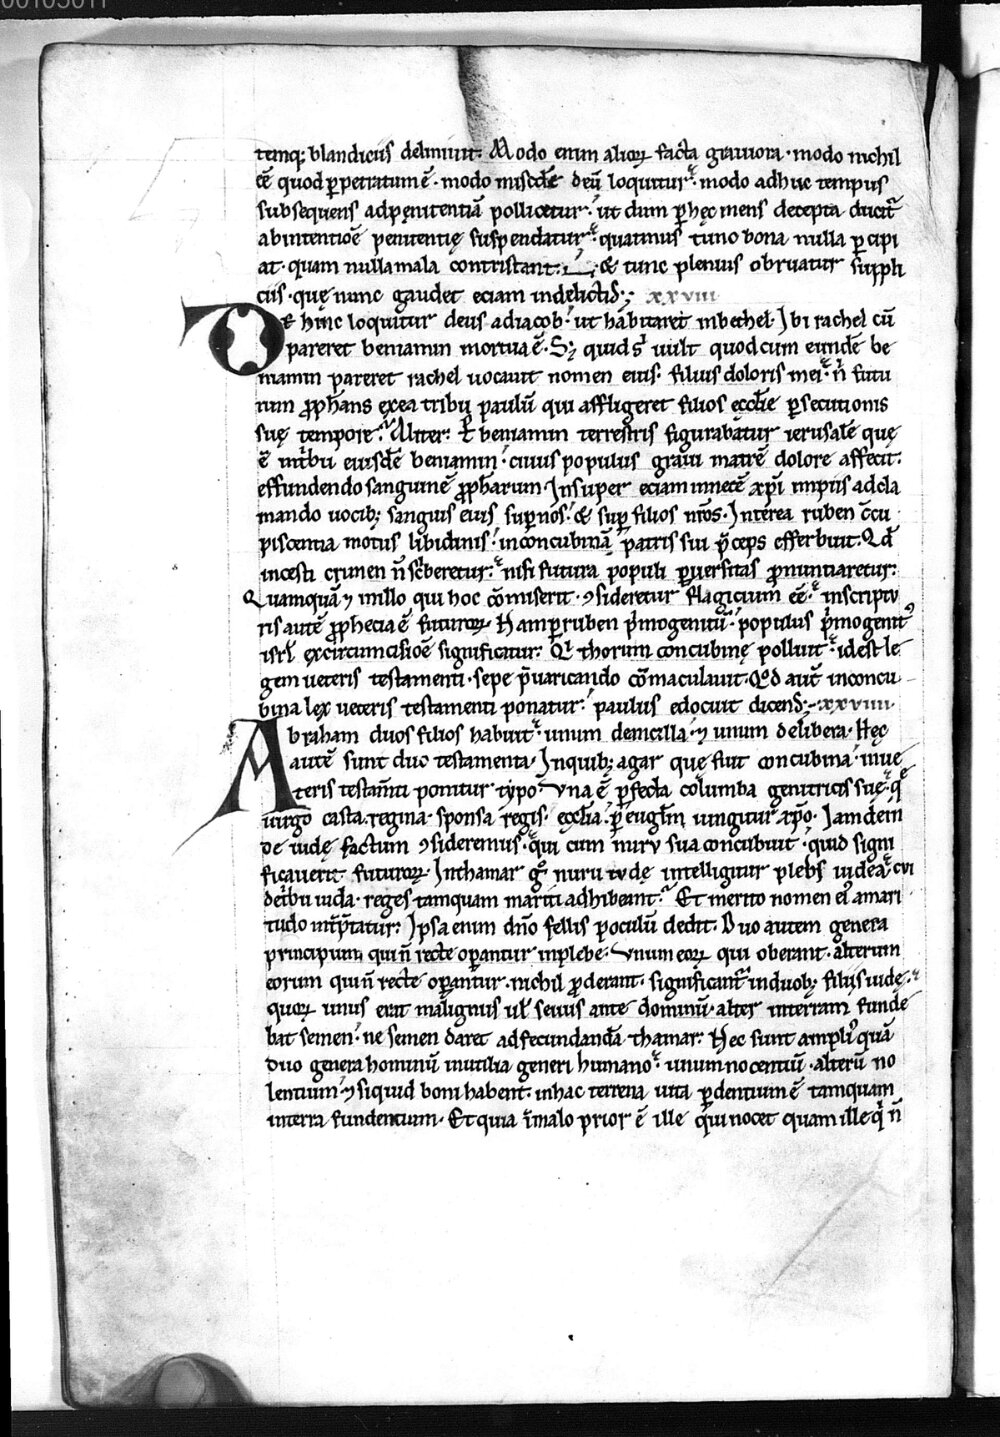 temq; blandiciis deliniuit. Modo enim alioꝝ facta grauiora. modo nichil
ēē quod ꝑpetratum ē. modo misc̄dē deū loquitur. modo adhuc tempus
subsequens ad penitentiā pollicetur. ut dum ꝑ hęc mens decepta ducit̄
ab intentiōē penitentię suspendatur. quatinus tunc bona nulla ꝑcipi
at. quam nulla mala contristant. & tunc plenius obruatur suppli
ciis. quę nunc gaudet eciam in delictis. xxviii
De hinc loquitur deus ad iacob. ut habitaret in bethel. Ibi rachel cū
pareret beniamin mortua ē. S; quid s̄ uult quod cum eundē be
niamin pareret rachel uocauit nomen eius. filius doloris mei. n̄ futu
rum ꝓph̄ans ex ea tribu paulū qui affligeret filios ecc̄lie ꝑsecutionis
suę tempore. Aliter. Et beniamin terrestris figurabatur ierusalē quę
ē in tribu eiusdē beniamin. cuius populus graui matrē dolore affecit.
effundendo sanguinē ꝓph̄arum. Insuper eciam in necē xp̄i impiis adcla
mando uocib; sanguis eius sup nos. & sup filios nr̄os. Interea ruben c̄cu
piscentia motus libidinis. in concubinā patris sui p̄ceps efferbuit. Qd̄
incesti crimen n̄ sc̄beretur. nisi futura populi ꝑuersitas ꝓnuntiaretur.
Quamquā ⁊ in illo qui hoc cōmiserit. ꝯsideretur flagicium ēē. in scriptu
ris autē ꝓphecia ē futuroꝝ. Nam ꝑ ruben p̄mogenitū. populus p̄mogenitꝰ
isrl̄ ex circumcisiōē significatur. Qi thorum concubinę polluit. id est le
gem ueteris testamenti. sepe p̄uaricando cōmaculauit. Qd aut̄ in concu
bina lex ueteris testamenti ponatur. paulus edocuit dicens. xxviiii
Abraham duos filios habuit. unum de ancilla. ⁊ unum de libera. Hęc
autē sunt duo testamenta. In quib; agar quę fuit concubina. in ue
teris testam̄ti ponitur typo. Vna ē ꝑfecta columba genitricis suę. q̄
uirgo casta. regina. sponsa regis. ꝑ eugl̄m iungitur xp̄o. Iam dein
de iudę factum ꝯsideremus. qui cum nuru sua concubuit. quid signi
ficauerit futuroꝝ. In thamar g̊ nuru iudę intelligitur plebs iudea. cui
de tribu iuda. reges tamquam mariti adhibeant̄. Et merito nomen eiꝰ amari
tudo int̄p̄tatur. Ipsa enim dn̄o fellis poculū dedit. Duo autem genera
principum, qui n̄ recte oꝑantur in plebe. Vnum eoꝝ qui oberant. alterum
eorum qui n̄ recte oꝑantur. nichil ꝓderant. significant̄ in duob; filiis iudę.
quoꝝ unus erat malignus ul̄ seuus ante dominū. alter in terram funde
bat semen. ne semen daret ad fecundandā thamar. Nec sunt ampliꝰ quā
duo genera hominū inutilia generi humano. unum nocentiū. alterū no
lentium. ⁊ si quid boni habent. in hac terrena uita ꝑdentium ē tamquam
in terra fundentium. Et quia ī malo prior ē ille qui nocet quam ille q̄ n̄